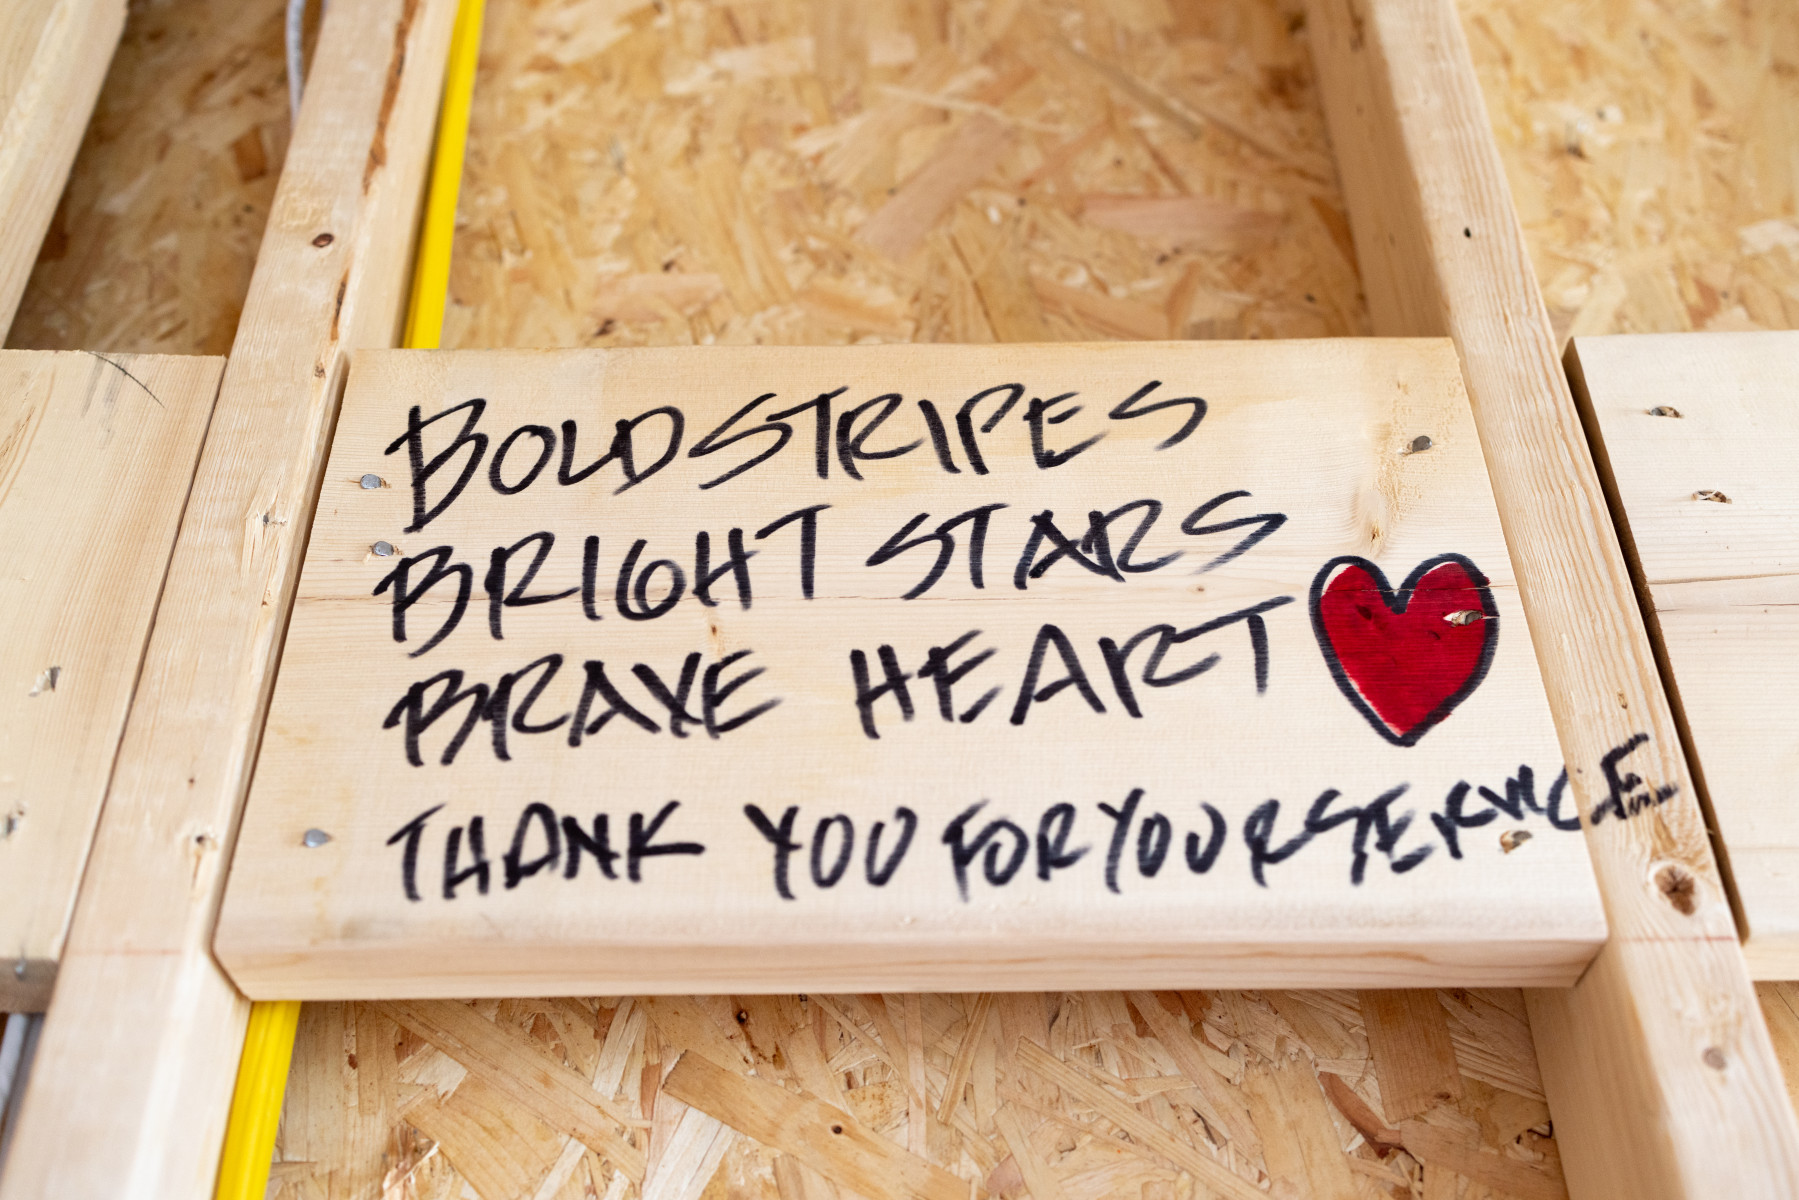 BOLD STRIPES
BRIGHT STARS
BRAVE HEART
THANK YOU FOR YOUR SERVICE